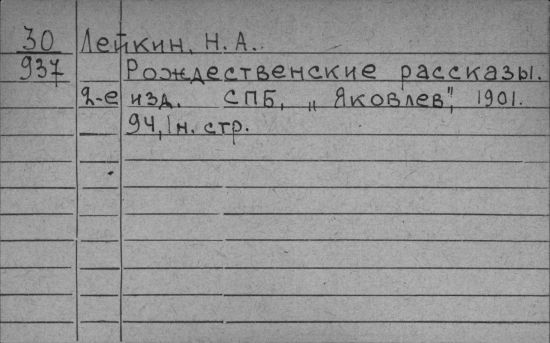 30 Лейкин, Н. А.
937 Рождественские рассказы.
2-е изд. СПБ, „Яковлев", 1901.
94, 1 н. стр.